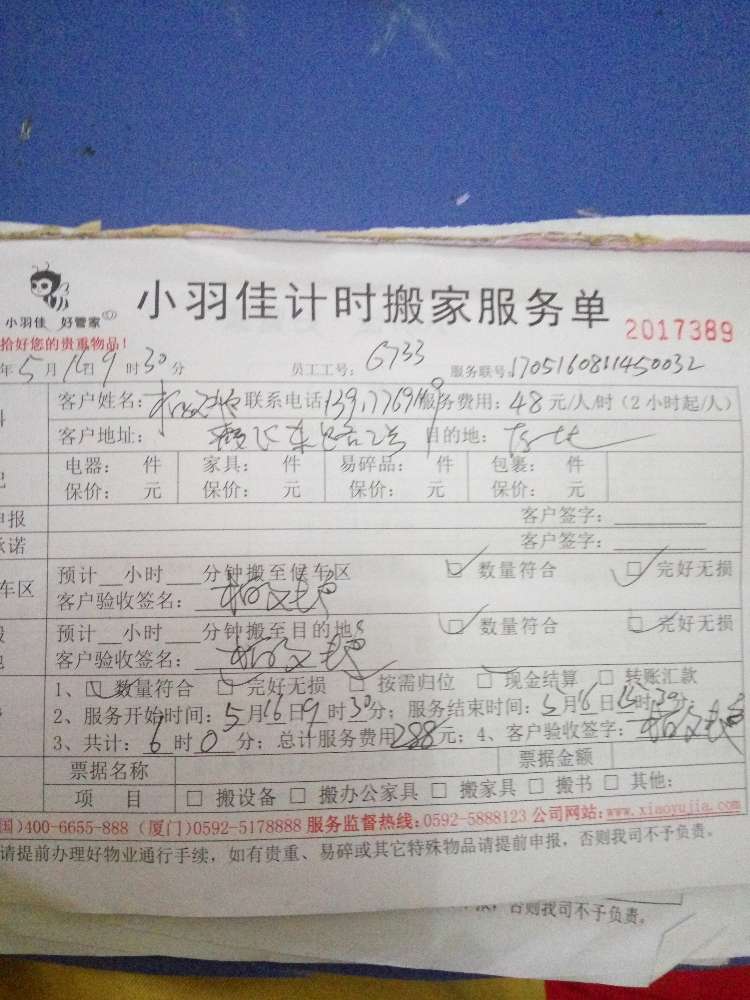 小羽佳 好管家
小羽佳计时搬家服务单
2017389
拾好您的贵重物品!
年5月16日9时30分 员工工号: G733 服务联号: 1705160811450032
客户姓名: 联系电话: 服务费用: 48元/人/时 (2小时起/人)
客户地址: 目的地:
电器: 件 家具: 件 易碎品: 件 包裹: 件
保价: 元 保价: 元 保价: 元 保价: 元
申报 客户签字:
承诺 客户签字:
车区 预计 小时 分钟搬至候车区 数量符合 完好无损
客户验收签名:
预计 小时 分钟搬至目的地 数量符合 完好无损
客户验收签名:
1、 数量符合 完好无损 按需归位 现金结算 转账汇款
2、服务开始时间: 5月16日9时30分; 服务结束时间: 5月16日15时30分;
3、共计: 6时0分; 总计服务费用288元; 4、客户验收签字:
票据名称 票据金额
项 目 □ 搬设备 □ 搬办公家具 □ 搬家具 □ 搬书 □ 其他:
国)400-6655-888 (厦门)0592-5178888 服务监督热线:0592-5888123 公司网站:www.xiaoyujia.com
请提前办理好物业通行手续, 如有贵重、易碎或其它特殊物品请提前申报, 否则我司不予负责。
否则我司不予负责。